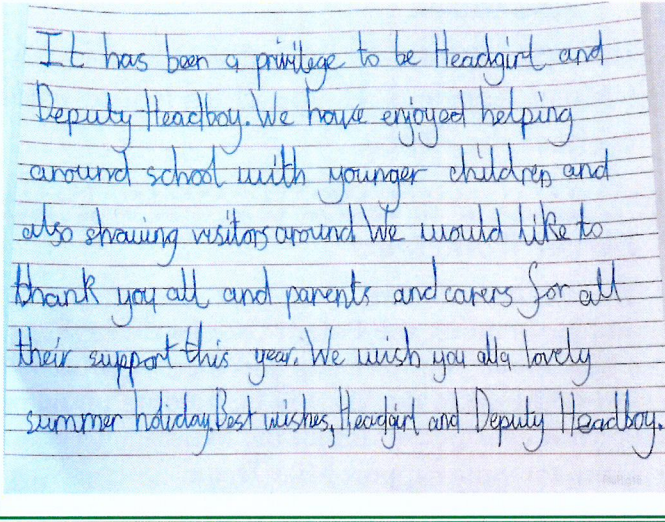 It has been a privilege to be Headgirl and
Deputy Headboy. We have enjoyed helping
around school with younger children and
also showing visitors around We would like to
thank you all and parents and carers for all
their support this year. We wish you all a lovely
summer holiday. Best wishes, Headgirl and Deputy Headboy.